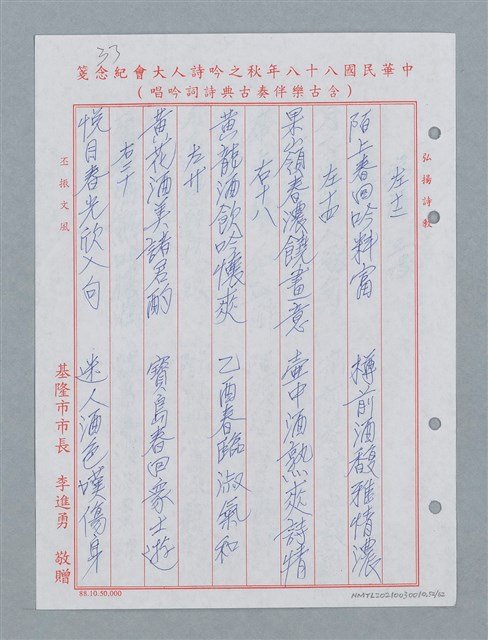 33
中華民國八十八年秋之吟詩人大會紀念箋
（含古樂伴奏古典詩詞吟唱）
弘揚詩教
左十二
陌上春回吟料富 樽前酒馥雅情濃
左十四
果嶺春濃饒畫意 壺中酒熟爽詩情
右十八
黃龍酒飲吟懷爽 乙酉春臨淑氣和
左廿
黃花酒美諸君酌 寶島春回眾士遊
右二十
悅目春光欣入句 迷人酒色嘆傷身
丕振文風
基隆市市長 李進勇 敬贈
88.10.50.000